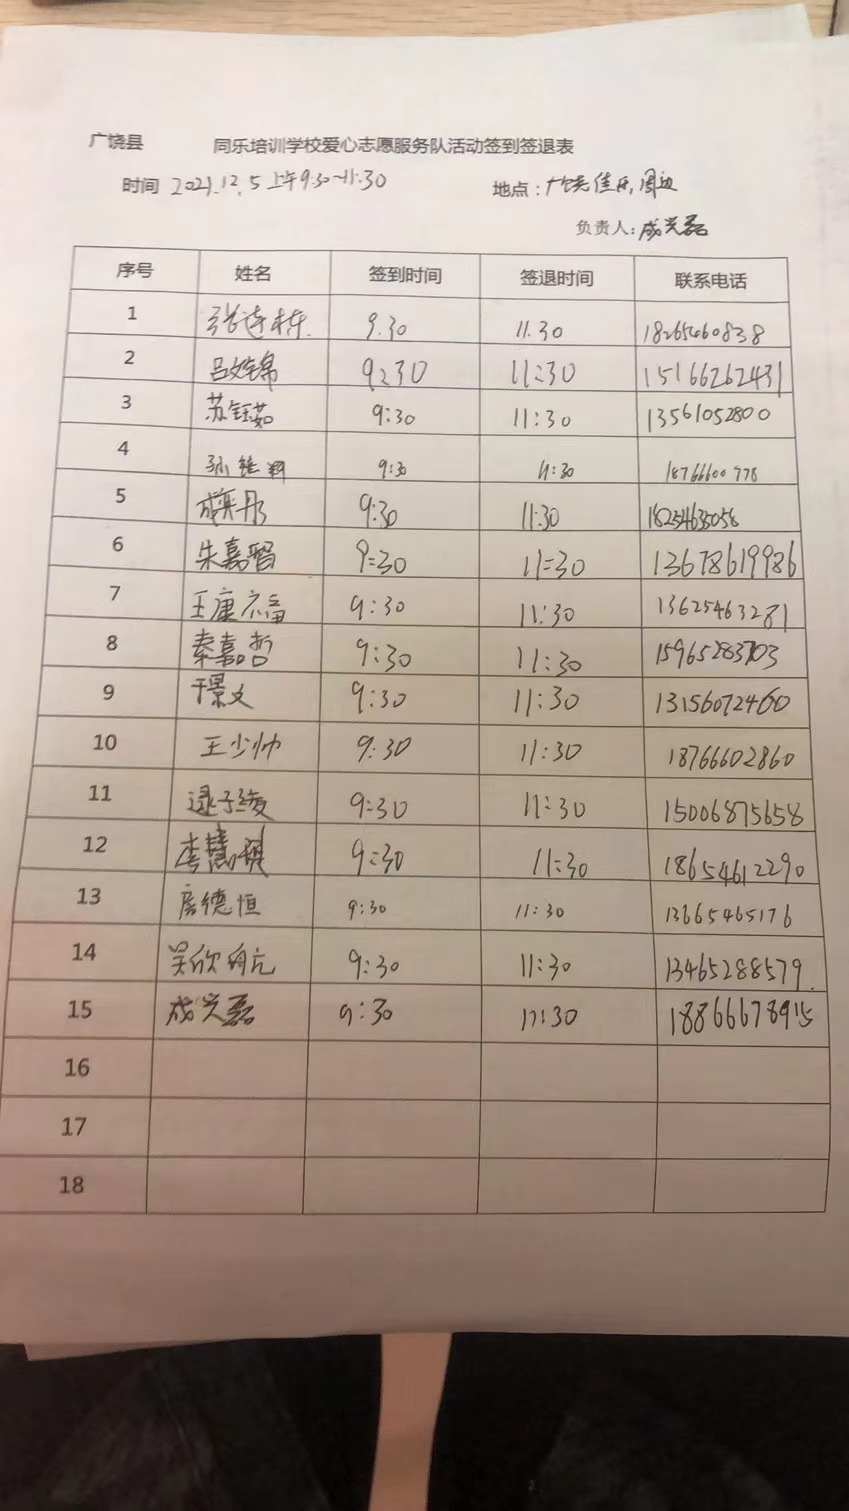 广饶县 同乐培训学校爱心志愿服务队活动签到签退表
时间 2021.12.5 上午9:30~11:30 地点:广饶佳乐,周边
负责人:成兴磊
序号 姓名 签到时间 签退时间 联系电话
1 张连栋. 9.30 11.30 18265460838
2 9:30 11:30 15166262431
3 苏钰茹 9:30 11:30 13561052800
4 孙维翔 9:30 11:30 18766600778
5 9:30 11:30 18254635058
6 朱嘉智 9:30 11:30 13678619986
7 王康福 9:30 11:30 13625463281
8 秦嘉哲 9:30 11:30 15965283703
9 于景文 9:30 11:30 13156072460
10 王少帅 9:30 11:30 18766602860
11 逯子绫 9:30 11:30 15006875658
12 李慧琪 9:30 11:30 18654612290
13 房德恒 9:30 11:30 13665465176
14 吴欣航 9:30 11:30 13465288579.
15 成兴磊 9:30 11:30 18866678915
16
17
18